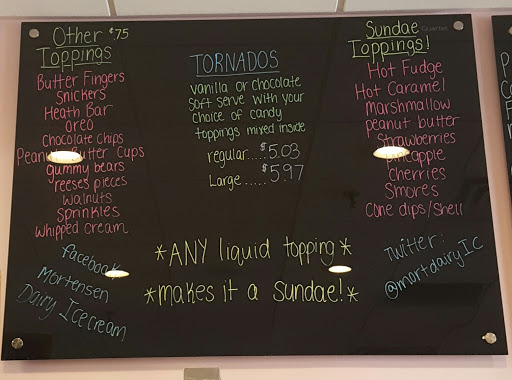 Other $.75
Toppings
Butter Fingers
Snickers
Heath Bar
Oreo
Chocolate Chips
Peanut Butter Cups
gummy bears
reeses pieces
walnuts
Sprinkles
Whipped cream
facebook
Mortensen
Dairy Ice cream
TORNADOS
vanilla or chocolate
soft serve with your
choice of candy
toppings mixed inside
regular.....$5.03
Large.....$5.97
*ANY liquid topping*
*makes it a Sundae!*
Sundae
Toppings!
Quartet
Hot Fudge
Hot Caramel
marshmallow
peanut butter
strawberries
pineapple
cherries
Smores
Cone dips/Shell
Twitter:
@mortdairyIC